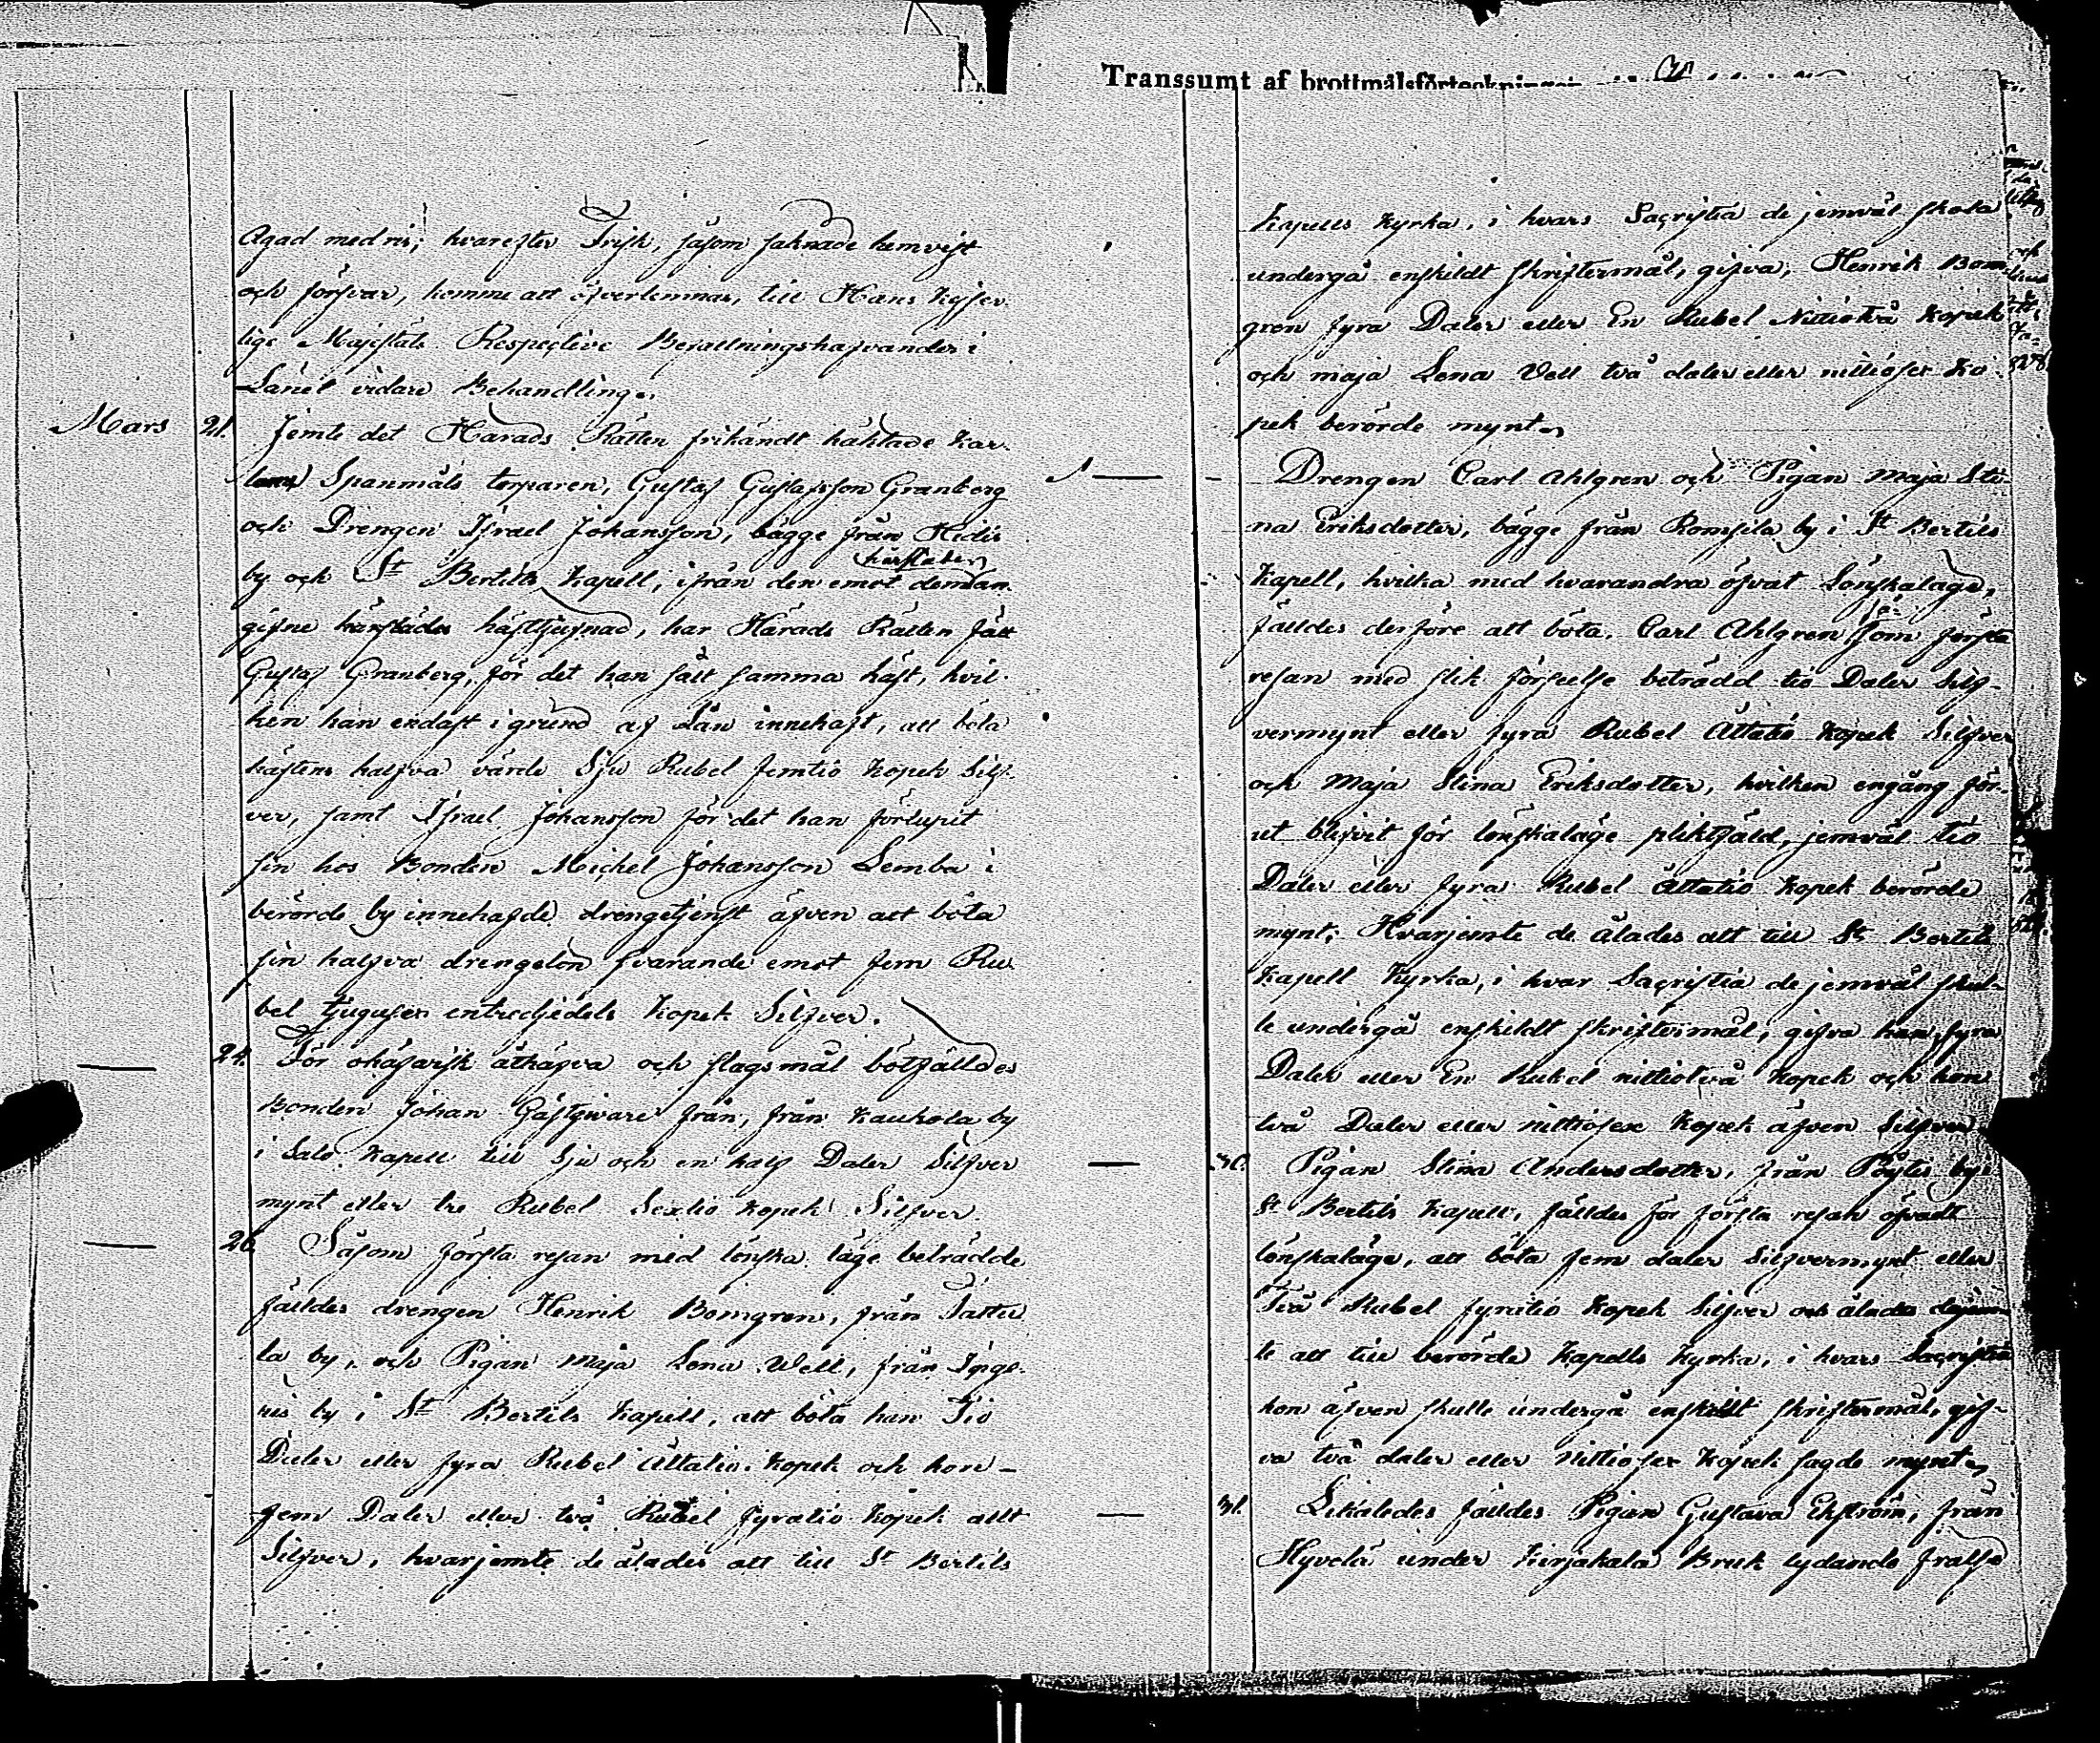 Agad med ris; hvarefter Frisk, såsom saknade hemvist
och försvar, komme att öfverlemnas, till Hans Kejser-
lige Majestäts Respective Befallningshafvandes i
Länet vidare Behandling.
Mars 21. Jemte det Härads Rätten frikändt häktade Kar-
Spanmåls torparen, Gustaf Gustafsson Granberg
och Drengen Israel Johansson, bägge från Hidis
härstädes
by och St Bertils Kapell, ifrån den emot dem an-
gifne häststjufnad, har Härads Rätten fält
Gustaf Granberg, för det han sålt samma häst, hvil-
ken han endast i grund af Lån innehaft, att böta
hästens halfva värde Sju Rubel femtio Kopek Silf-
ver, samt Israel Johansson för det han förlupit
sin hos Bonden Michel Johansson Lemba i
berörde by innehafde drengetjenst äfven att böta
sin halfva drengelön svarande emot fem Ru-
bel tjugusex entredjedels Kopek Silfver.
— 24. För okäfarisk åthäfva och slagsmål bötfälldes
Bonden Johan Gästgivare från, från Kaukola by
i Salo Kapell till Sju och en half Daler Silfver
mynt eller tre Rubel Sextio Kopek Silfver.
— 26. Såsom första resan med lönska läge beträdde
fälldes drengen Henrik Bomgren, från Tattu
la by, och Pigan Maja Lena Well, från Inge-
ris by i St Bertils Kapell, att böta han Tio
Daler eller fyra Rubel Åttatio Kopek och hon
fem Daler eller två Rubel fyratio Kopek allt
Silfver, hvarjemte de ålades att till St Bertils
Transsumt af brottmålsförteckningen
Kapells Kyrka, i hvars Sacristia de jemväl skola
undergå enskildt skriftermål, gifva, Henrik Bom-
gren fyra Daler eller En Rubel Nittiotvå Kopek
och Maja Lena Vell två daler eller nittiosex Ko-
pek berörde mynt.
— Drengen Carl Ahlgren och Pigan Maja Sti-
na Eriksdotter, bägge från Romsila by i St Bertils
Kapell, hvilka med hvarandra öfvat Lönskaläge,
fälldes derföre att böta, Carl Ahlgren som första
resan med slik förseelse beträdd tio Daler Silf-
vermynt eller fyra Rubel Åttatio Kopek Silfver
och Maja Stina Eriksdotter, hvilken engång för-
ut blifvit för lönskaläge pliktfäld, jemväl tio
Daler eller fyra Rubel Åttatio Kopek berörde
mynt; Hvarjemte de ålades att till St Bertils
Kapell Kyrka, i hvar Sacristia de jemväl skul-
le undergå enskildt skriftermål, gifva han fyra
Daler eller En Rubel nittiotvå Kopek och hon
två Daler eller nittiosex Kopek äfven Silfver
— 30. Pigan Stina Andersdotter, från Pöytis by i
St Bertils Kapell, fälldes för första resan öfvadt
lönskaläge, att böta fem daler Silfvermynt eller
Två Rubel fyratio Kopek Silfver och ålades dejem-
te att till berörde Kapells Kyrka, i hvars Sacristia
hon äfven skulle undergå enskildt skriftermål, gif-
va två daler eller Nittiosex Kopek sagde mynt
— 31. Likaledes fälldes Pigan Gustava Ekström, från
Hyvelä under Kirjakala Bruk lydande frälse